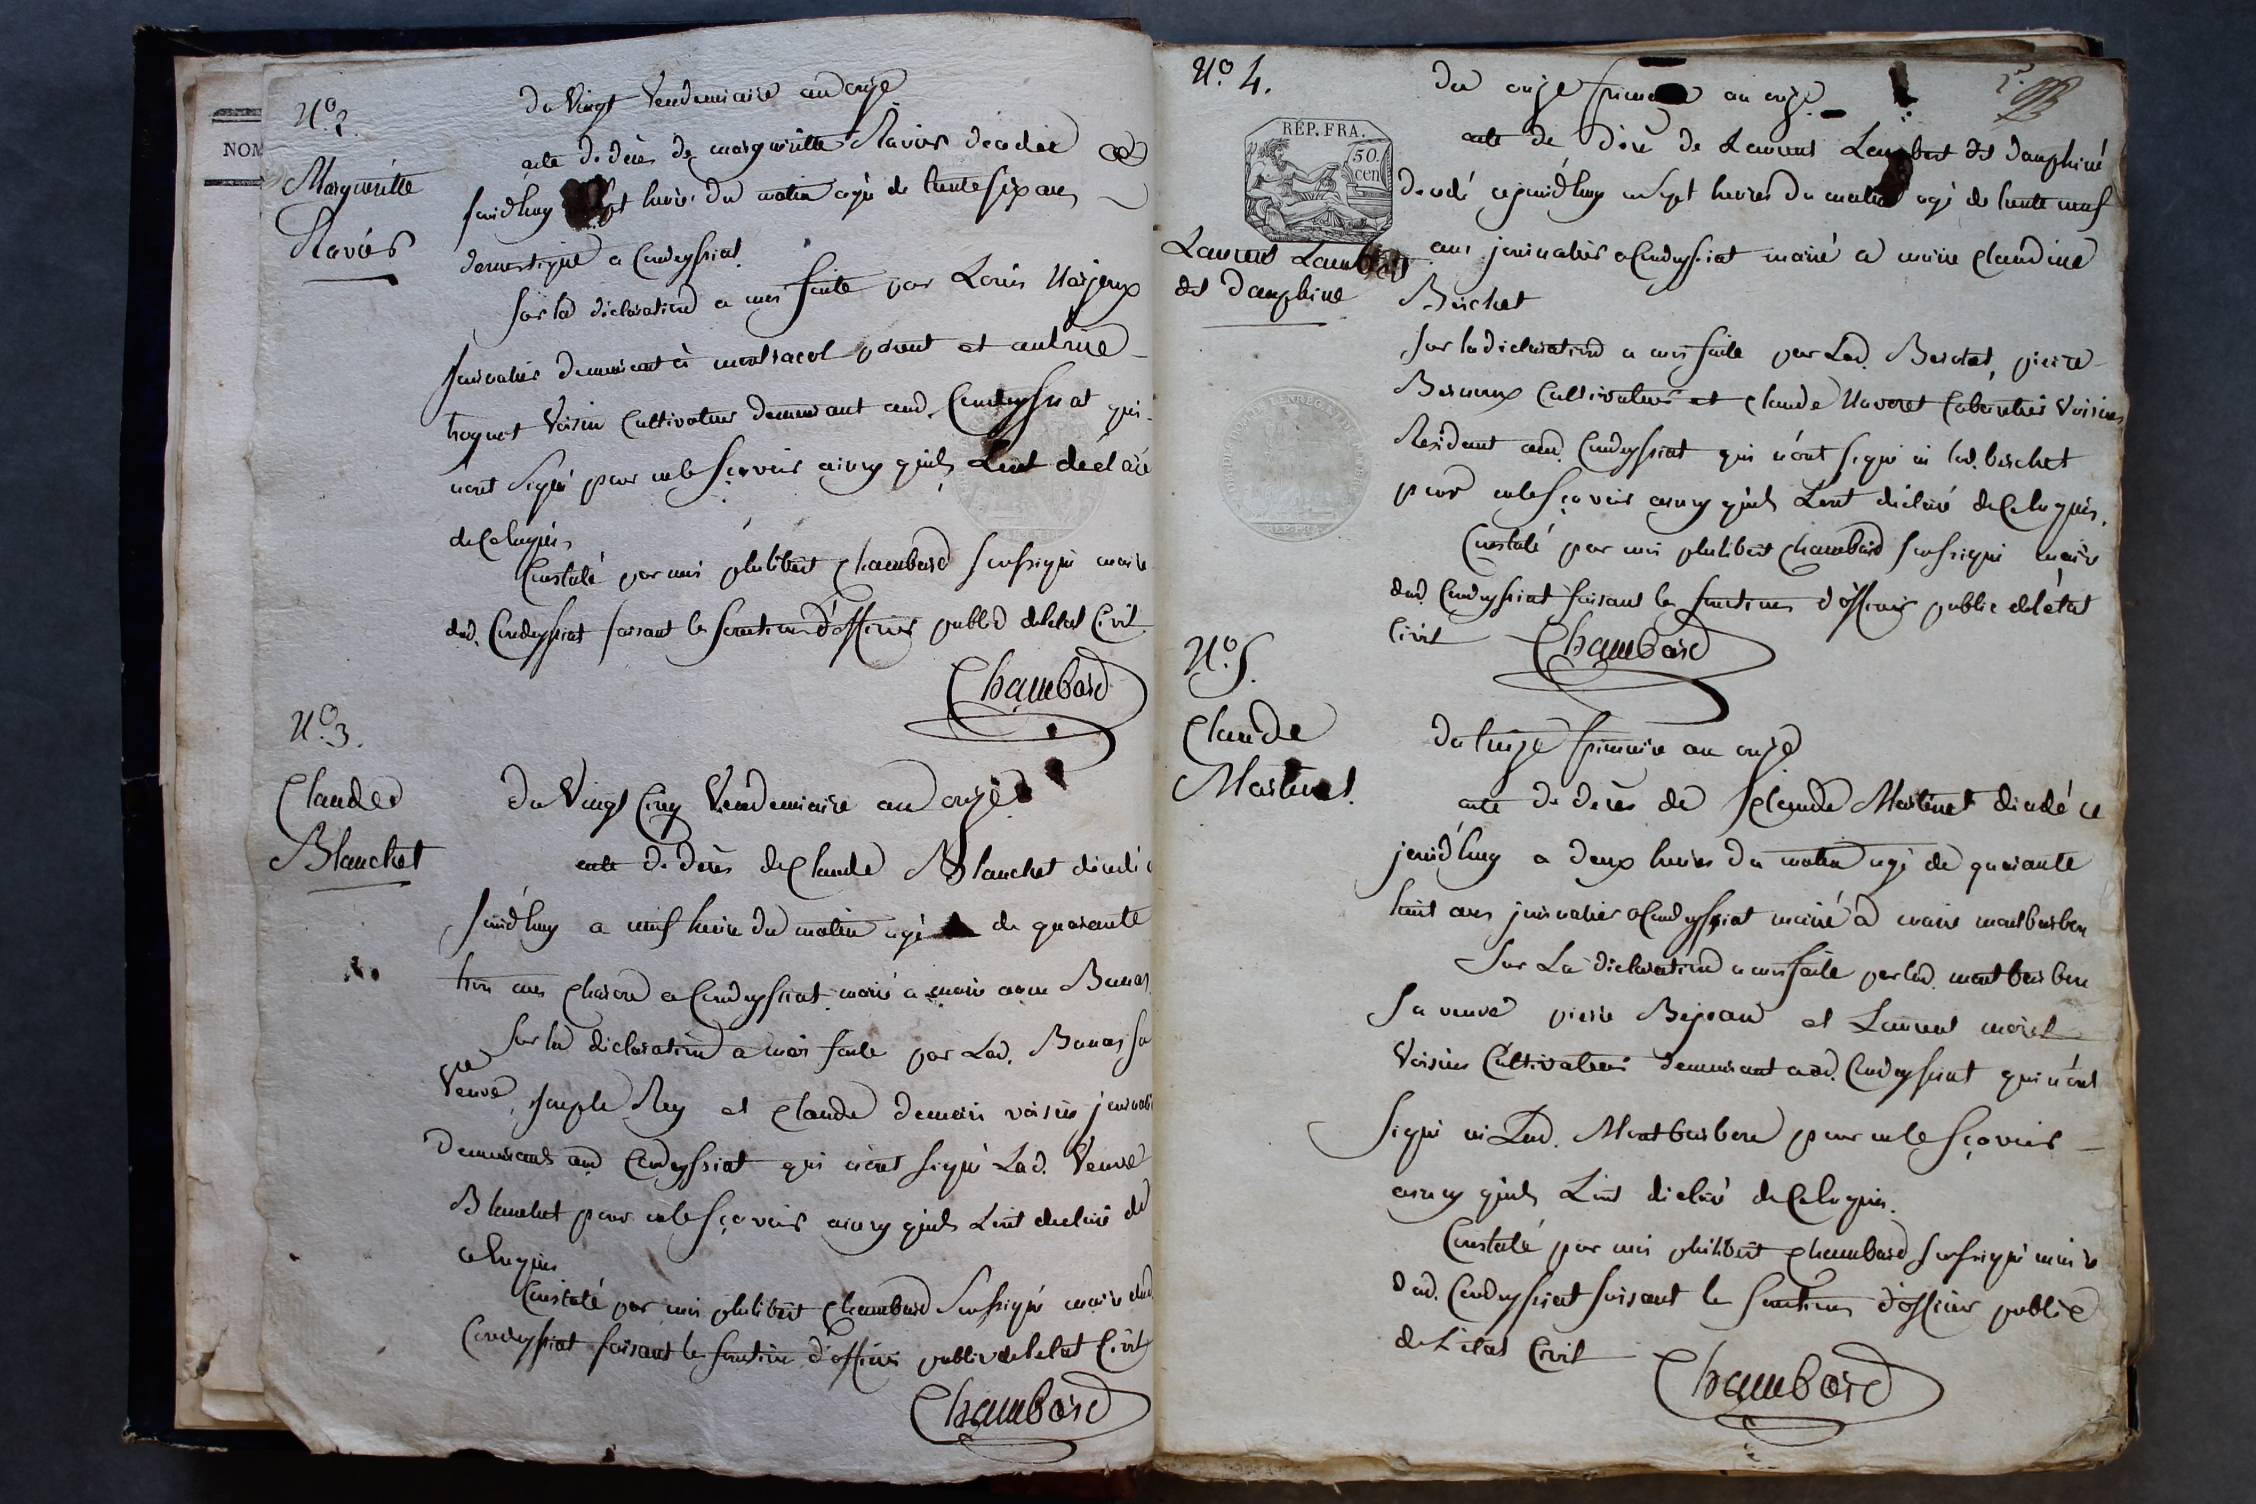 NOM
N.o 2.
Margueritte
Ravier
du Vingt Vendemiaire an onze
acte de décès de margueritte Ravier décedée ce
jourd'huy heures du matin agée de trente six ans
domestique a Condeyssiat
sur la declaration a moi faite par Louis
journalier demeurant à montracol parent et antoine
voisin Cultivateur demeurant aud. Condeyssiat qui
n'ont signé pour ne le sçavoir ainsy qu'ils L'ont déclaré
de Ce Requis
Constaté par moi philibert Chambard soussigné maire
dud. Condeyssiat faisant les fonctions d'officier public de l'etat Civil
Chambard
N.o 3.
Claude
Blanchet
du Vingt Cinq Vendemiaire an onze
acte de décès de Claude Blanchet décedé ce
jourd'huy a neuf heure du matin agé de quarante
trois ans charon a Condeyssiat marié a marie
sur la declaration a moi faite par Lad. sa
Veuve, joseph Rey et Claude voisins
demeurants aud Condeyssiat qui n'ont signé Lad. Veuve
Blanchet pour ne le sçavoir ainsy qu'ils L'ont declaré de
ce Requis
Constaté par moi philibert Chambard Soussigné maire dud
Condeyssiat faisant les fonctions d'officier public de l'etat Civil
Chambard
N.o 4.
RÉP. FRA.
50.
cen
Laurent Lambert
dit Dauphiné
du onze frimaire an onze
acte de décès de Laurent Lambert dit dauphiné
décedé cejourd'huy a sept heures du matin agé de trente neuf
ans journalier a Condeyssiat marié a marie Claudine
Borchet
sur la declaration a moi faite par Lad. Borchet, pierre
Cultivateur et Claude voisins
Residant aud. Condeyssiat qui n'ont signé ni lad. borchet
pour ne le sçavoir ainsy qu'ils L'ont déclaré de Ce Requis.
Constaté par moi philibert Chambard soussigné maire
dud. Condeyssiat faisant les fonctions d'officier public de l'état
Civil Chambard
N.o 5.
Claude
Martinet.
du treize frimaire an onze
acte de décès de Claude Martinet décedé ce
jourd'huy a deux heures du matin agé de quarante
huit ans journalier a Condeyssiat marié a marie montbarbon
Sur La declaration a moi faite par lad. montbarbon
Sa veuve pierre et Laurent morel
Voisins Cultivateurs demeurant aud. Condeyssiat qui n'ont
signé ni Lad. Montbarbon pour ne le sçavoir
ainsy qu'ils L'ont declaré de Ce Requis.
Constaté par moi philibert Chambard soussigné maire
dud. Condeyssiat faisant les fonctions d'officier public
de L'état Civil Chambard